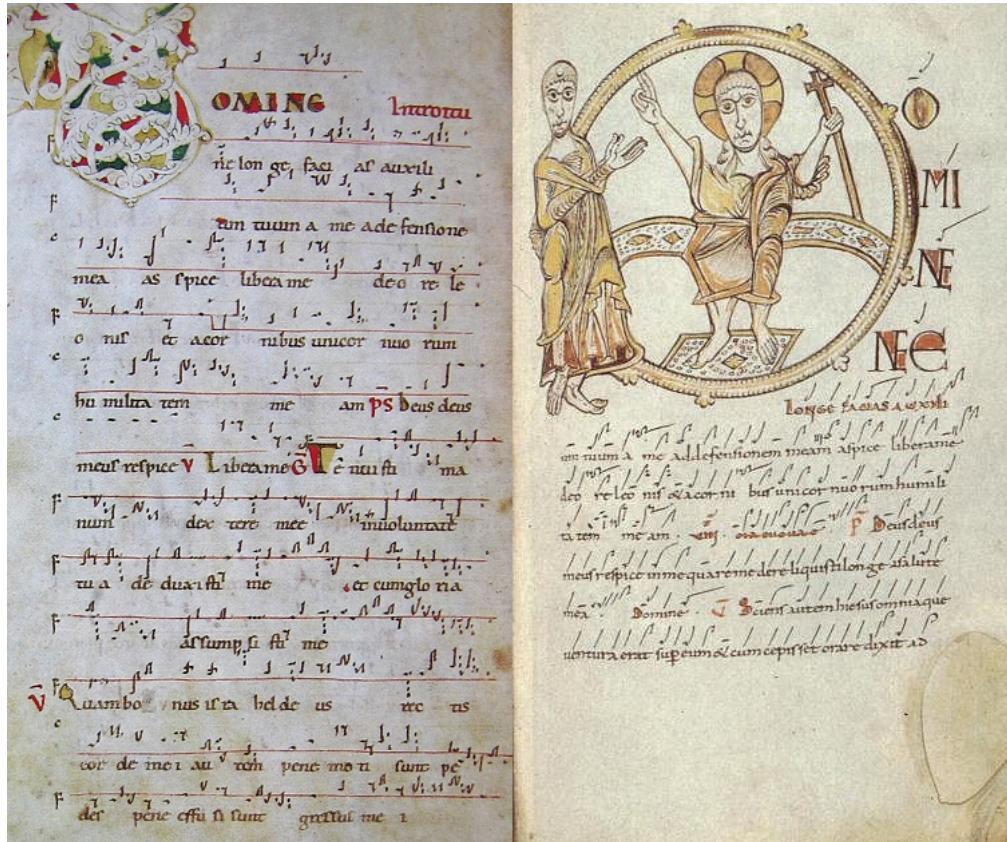 OMINE Introitu
ne longe faci as auxili
um tuum a me ad e fensione
mea as spice libera me de o re le
o nis et a cor nibus unicor nuo rum
hu milita tem me am PS Deus deus
meus respice V Libera me G Te nui sti ma
num dex tere mee in uoluntate
tu a de dux i sti me et cum glo ria
assump si sti me
V Quam bo nus is ra hel de us rec tis
cor de mei au tem pene mo ti sunt pe
des pene effu si sunt gressus me i
O
MI
NE
NE
LONGE FACIAS AUXILI
um tuum a me ad defensionem meam aspice libera me
de o re leo nis & a cor ni bus unicor nuo rum humili
ta tem me am . P Deus deus
meus respice in me quare me dereliquisti longe a salute
mea . Domine . Sciens autem hiesus omnia que
uentura erat super eum & cum cepisset orare dixit ad